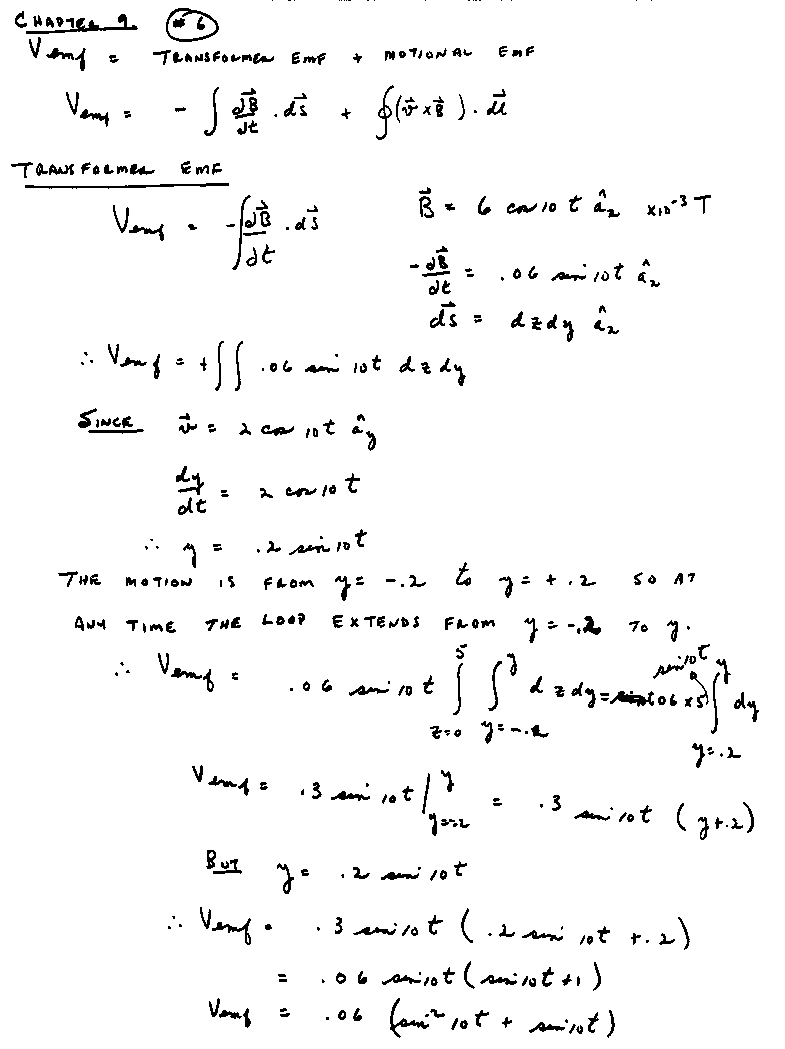 CHAPTER 9. #6
Vemf = TRANSFORMER EMF + MOTIONAL EMF
Vemf = - ∫ dB⃗/dt · ds⃗ + ∮(v⃗ × B⃗) · dl⃗
TRANSFORMER EMF
Vemf = -∫ dB⃗/dt · ds⃗
B⃗ = 6 cos 10 t âx x10⁻³ T
-dB⃗/dt = .06 sin 10t âx
ds⃗ = dz dy âx
∴ Vemf = +∫∫ .06 sin 10t dz dy
SINCE v⃗ = 2 cos 10t ây
dy/dt = 2 cos 10t
∴ y = .2 sin 10t
THE MOTION IS FROM y = -.2 to y = +.2 SO AT
ANY TIME THE LOOP EXTENDS FROM y = -.2 TO y.
∴ Vemf = .06 sin 10t ∫_{z=0}^{5} ∫_{y=-.2}^{y} dz dy = .06 x 5 sin 10t ∫_{y=.2}^{y} dy
Vemf = .3 sin 10t |_{y=-.2}^{y} = .3 sin 10t (y+.2)
BUT y = .2 sin 10t
∴ Vemf = .3 sin 10t (.2 sin 10t +.2)
= .06 sin 10t (sin 10t +1)
Vemf = .06 (sin² 10t + sin 10t)